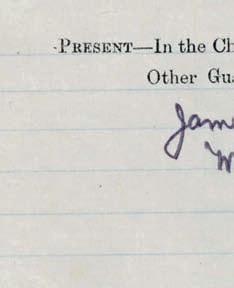 PRESENT—In the Ch
Other Gua
Jam
W